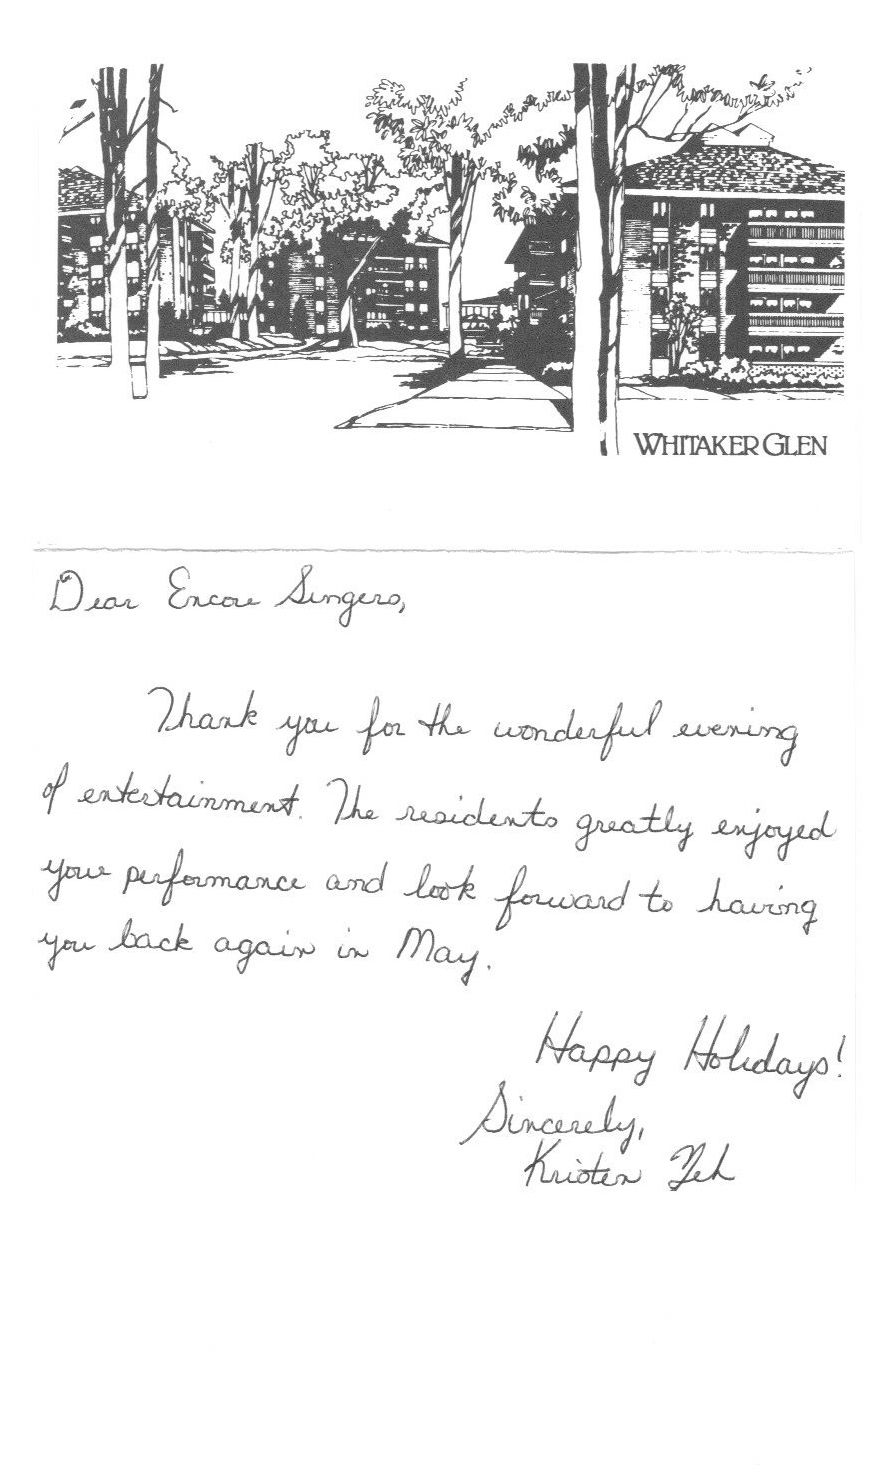 WHITAKER GLEN
Dear Encore Singers,
Thank you for the wonderful evening
of entertainment. The residents greatly enjoyed
your performance and look forward to having
you back again in May.
Happy Holidays!
Sincerely,
Kristen Yeh